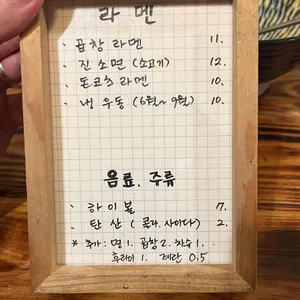 라 멘
· 곱창 라멘 11.
· 진 소면 (소고기) 12.
· 돈코츠 라멘 10.
· 냉 우동 (6월~9월) 10.
음료. 주류
· 하이볼 7.
· 탄산 (콜라. 사이다) 2.
* 추가 : 면 1. 곱창 2. 차슈 1.
후라이 1. 계란 0.5